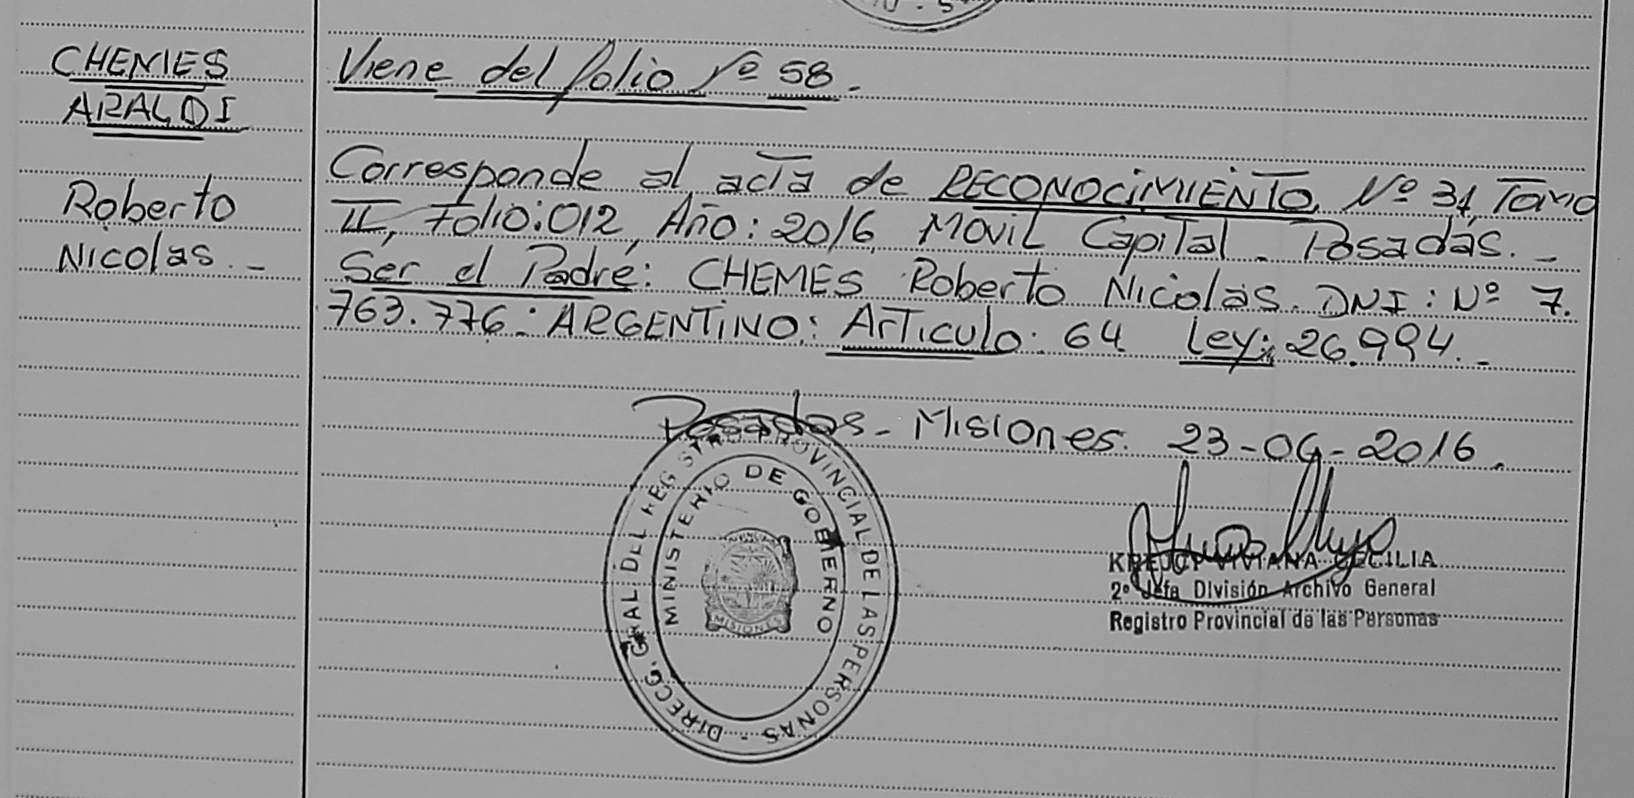 CHEMES
ARALDI
Roberto
Nicolas.-
Viene del folio Nº 58.
Corresponde al acta de RECONOCIMIENTO, Nº 31, Tomo
II, Folio: 012, Año: 2016 Movil Capital. Posadas.-
Ser el Padre: CHEMES Roberto Nicolas. DNI: Nº 7.
763.776. ARGENTINO: Articulo: 64 Ley: 26.994.-
Posadas - Misiones. 23-06-2016.
DIRECC. GRAL DEL REGISTRO PROVINCIAL DE LAS PERSONAS -
MINISTERIO DE GOBIERNO
MISIONES
VIVIANA CECILIA
2º Jefa División Archivo General
Registro Provincial de las Personas